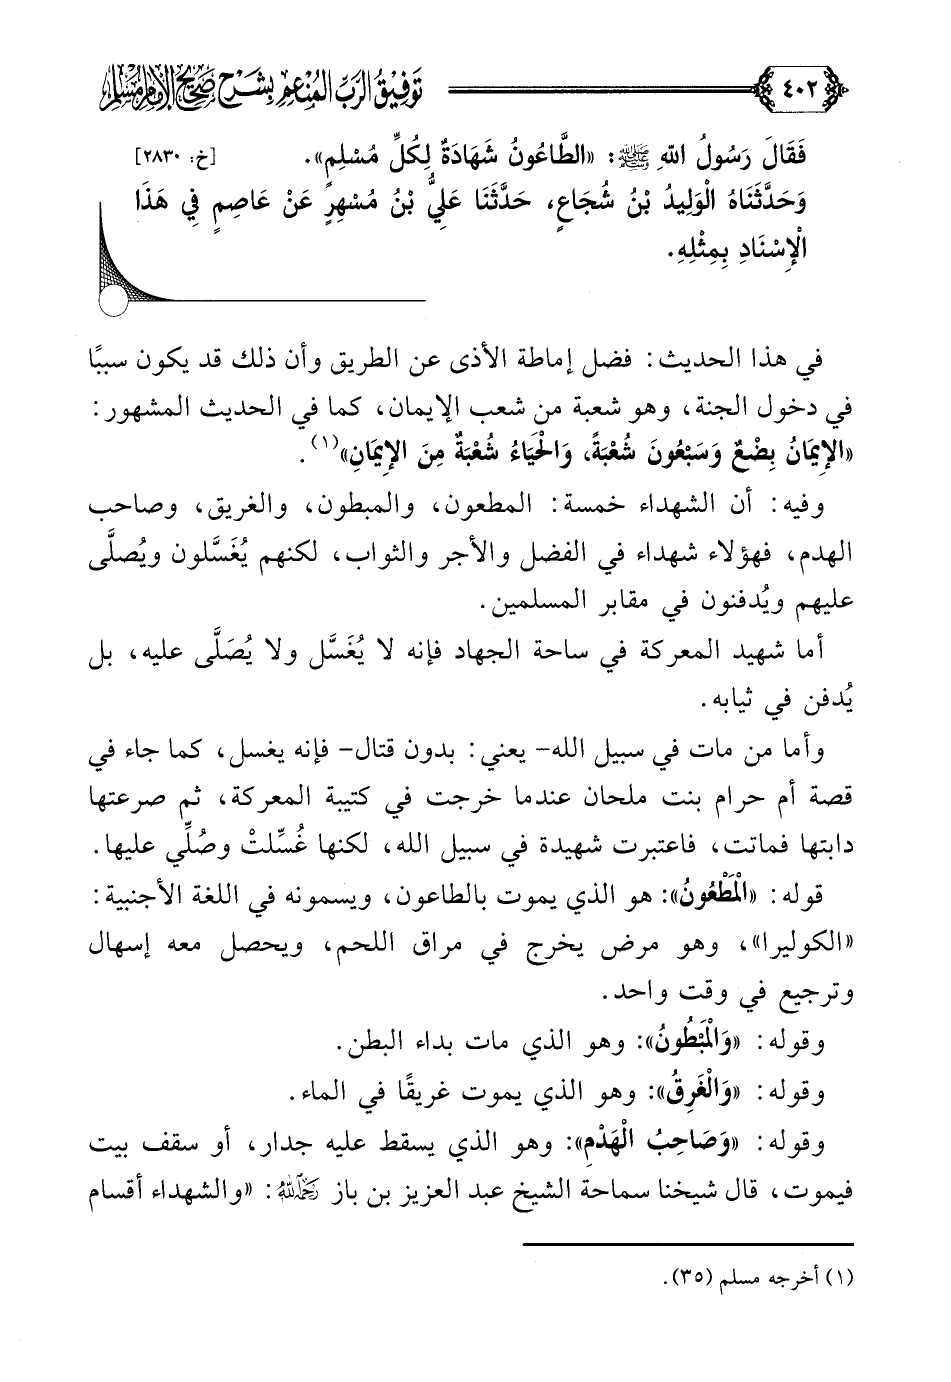 ٤٠٢ توفيق الرب المنعم بشرح صحيح الإمام مسلم
فَقَالَ رَسُولُ اللهِ ﷺ: «الطَّاعُونُ شَهَادَةٌ لِكُلِّ مُسْلِمٍ». [خ: ٢٨٣٠]
وَحَدَّثَنَاهُ الْوَلِيدُ بْنُ شُجَاعٍ، حَدَّثَنَا عَلِيُّ بْنُ مُسْهِرٍ عَنْ عَاصِمٍ فِي هَذَا
الْإِسْنَادِ بِمِثْلِهِ.
في هذا الحديث: فضل إماطة الأذى عن الطريق وأن ذلك قد يكون سببًا
في دخول الجنة، وهو شعبة من شعب الإيمان، كما في الحديث المشهور:
«الإِيمَانُ بِضْعٌ وَسَبْعُونَ شُعْبَةً، وَالْحَيَاءُ شُعْبَةٌ مِنَ الإِيمَانِ»(١).
وفيه: أن الشهداء خمسة: المطعون، والمبطون، والغريق، وصاحب
الهدم، فهؤلاء شهداء في الفضل والأجر والثواب، لكنهم يُغَسَّلون ويُصلَّى
عليهم ويُدفنون في مقابر المسلمين.
أما شهيد المعركة في ساحة الجهاد فإنه لا يُغَسَّل ولا يُصَلَّى عليه، بل
يُدفن في ثيابه.
وأما من مات في سبيل الله- يعني: بدون قتال- فإنه يغسل، كما جاء في
قصة أم حرام بنت ملحان عندما خرجت في كتيبة المعركة، ثم صرعتها
دابتها فماتت، فاعتبرت شهيدة في سبيل الله، لكنها غُسِّلتْ وصُلِّي عليها.
قوله: «الْمَطْعُونُ»: هو الذي يموت بالطاعون، ويسمونه في اللغة الأجنبية:
«الكوليرا»، وهو مرض يخرج في مراق اللحم، ويحصل معه إسهال
وترجيع في وقت واحد.
وقوله: «وَالْمَبْطُونُ»: وهو الذي مات بداء البطن.
وقوله: «وَالْغَرِقُ»: وهو الذي يموت غريقًا في الماء.
وقوله: «وَصَاحِبُ الْهَدْمِ»: وهو الذي يسقط عليه جدار، أو سقف بيت
فيموت، قال شيخنا سماحة الشيخ عبد العزيز بن باز رحمه الله: «والشهداء أقسام
(١) أخرجه مسلم (٣٥).